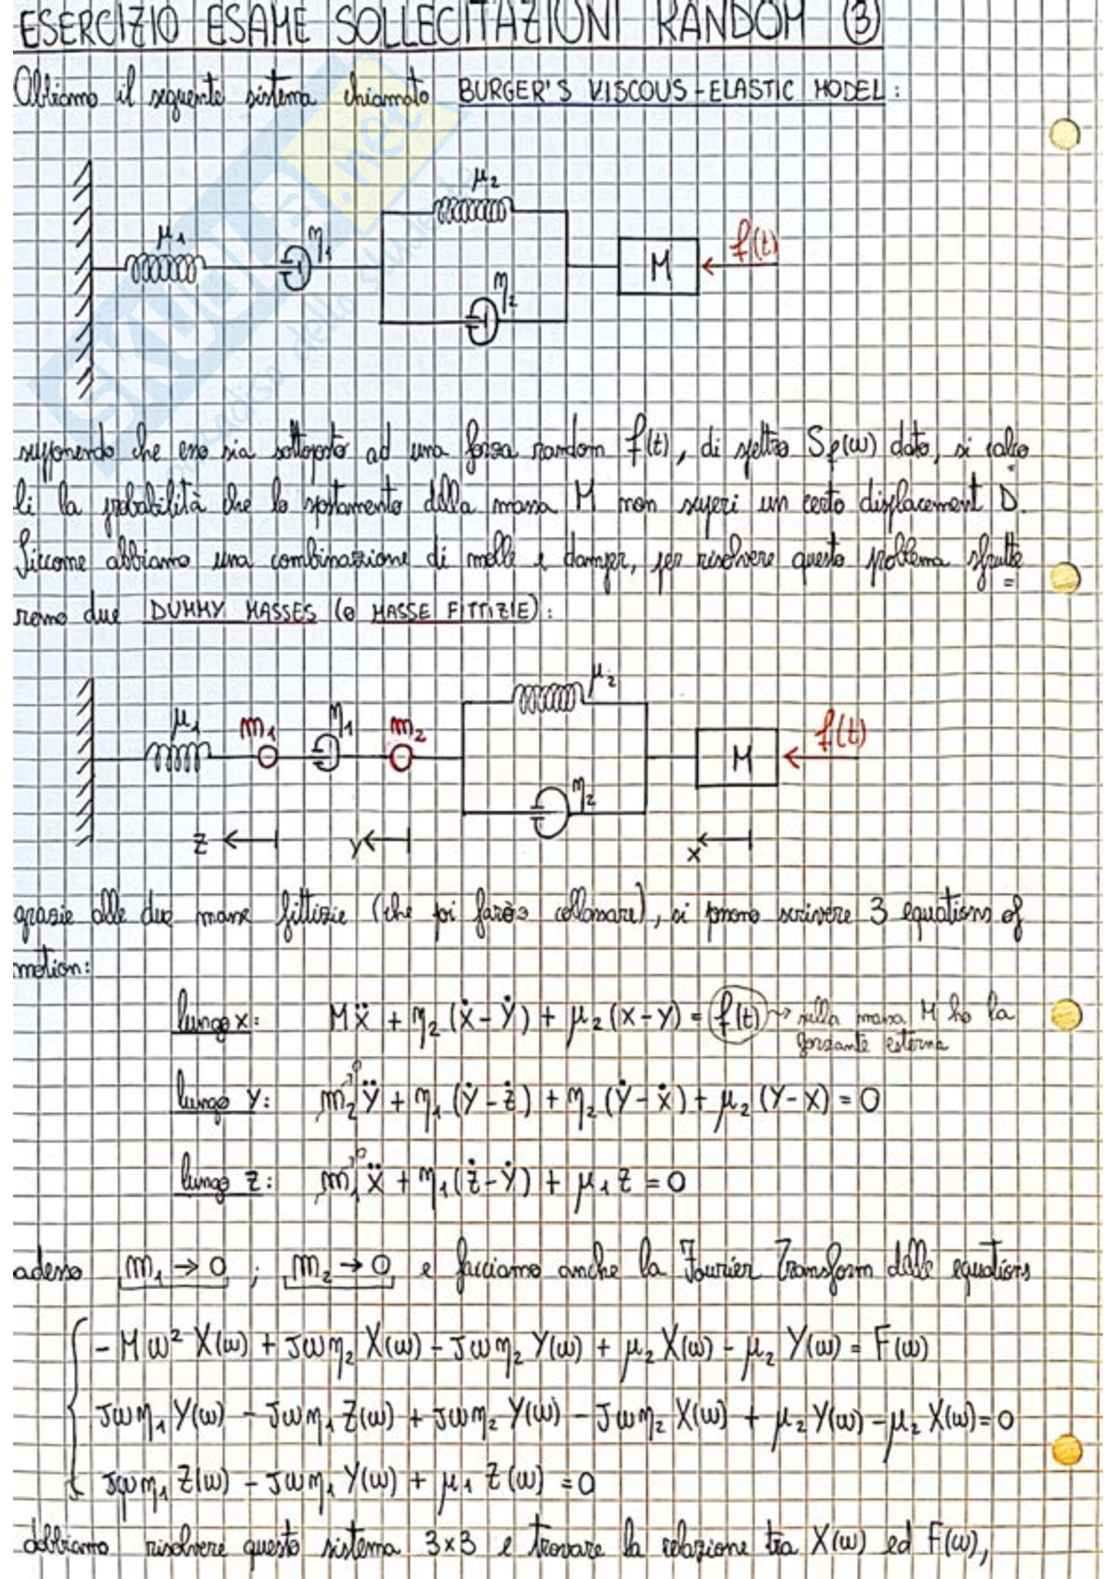 ESERCIZIO ESAME SOLLECITAZIONI RANDOM ③
Abbiamo il seguente sistema chiamato BURGER'S VISCOUS-ELASTIC MODEL:
μ₂
μ₁ η₁ M f(t)
η₂
supponendo che esso sia sottoposto ad una forza random f(t), di spettro S_f(ω) dato, si calco
li la probabilità che lo spostamento della massa M non superi un certo displacement D.
Siccome abbiamo una combinazione di molle e damper, per risolvere questo problema sfrutte
remo due DUMMY MASSES (o MASSE FITTIZIE):
μ₂
μ₁ m₁ η₁ m₂ M f(t)
η₂
z y x
grazie alle due masse fittizie (che poi farò collassare), si possono scrivere 3 equations of
motion:
lungo x: Mẍ + η₂(ẋ-ẏ) + μ₂(x-y) = f(t) → sulla massa M ho la
forzante esterna
lungo y: m₂→0 ÿ + η₁(ẏ-ż) + η₂(ẏ-ẋ) + μ₂(y-x) = 0
lungo z: m₁→0 ẍ + η₁(ż-ẏ) + μ₁z = 0
adesso m₁→0 ; m₂→0 e facciamo anche la Fourier Transform delle equations
-Mω² X(ω) + Jωη₂ X(ω) - Jωη₂ Y(ω) + μ₂ X(ω) - μ₂ Y(ω) = F(ω)
Jωη₁ Y(ω) - Jωη₁ Z(ω) + Jωη₂ Y(ω) - Jωη₂ X(ω) + μ₂ Y(ω) - μ₂ X(ω) = 0
Jωη₁ Z(ω) - Jωη₁ Y(ω) + μ₁ Z(ω) = 0
dobbiamo risolvere questo sistema 3×3 e trovare la relazione tra X(ω) ed F(ω),